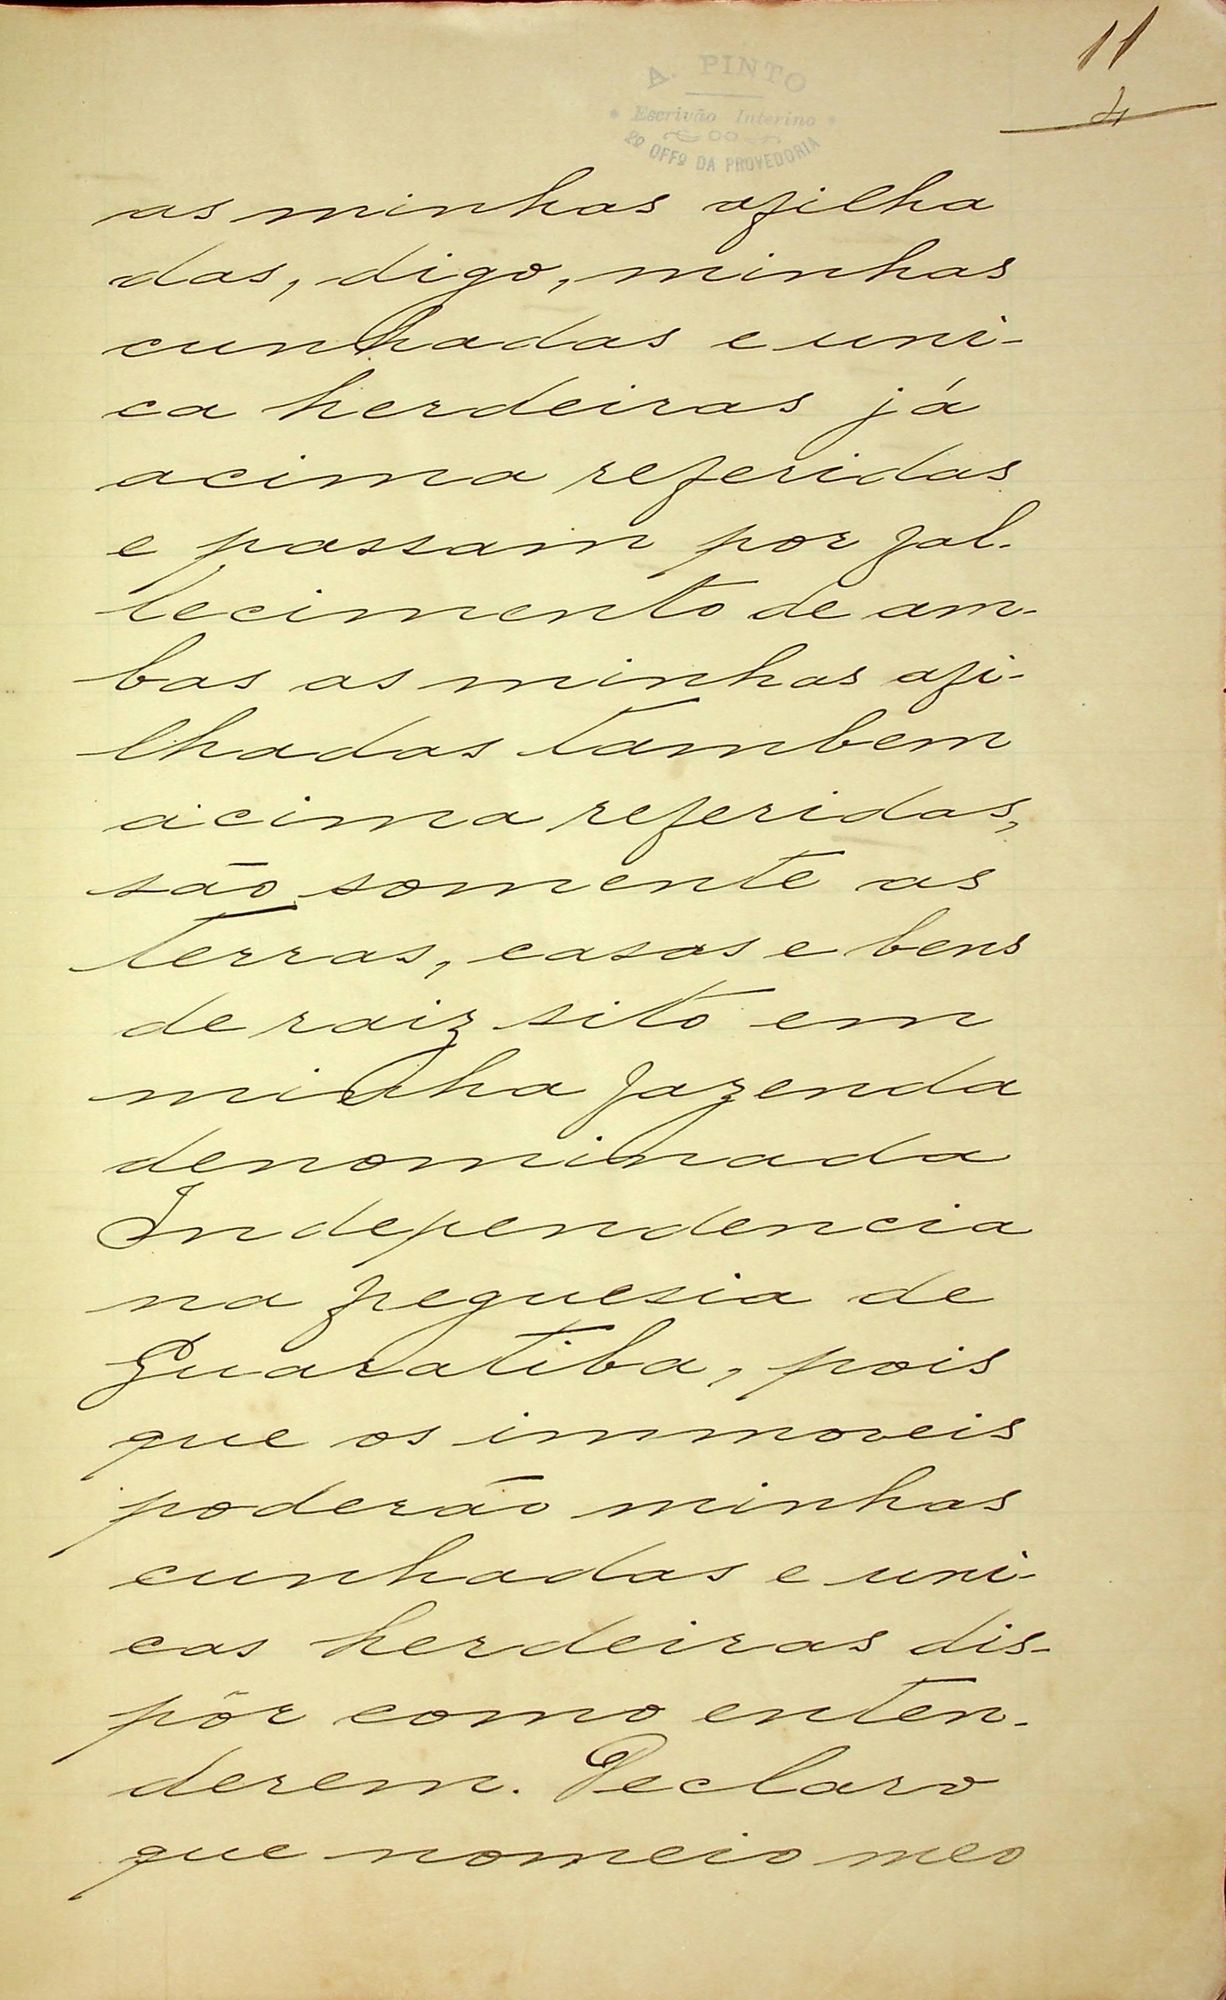 11
4
A. PINTO
Escrivão Interino
2º OFFº DA PROVEDORIA
as minhas afilha
das, digo, minhas
cunhadas e uni-
ca herdeiras já
acima referidas
e passam por fal-
lecimento de am-
bas as minhas afi-
lhadas tambem
acima referidas,
são somente as
terras, casas e bens
de raiz sito em
minha fazenda
denominada
Independencia
na freguesia de
Guaratiba, pois
que os immoveis
poderão minhas
cunhadas e uni-
cas herdeiras dis-
pôr como enten-
derem. Declaro
que nomeio meo